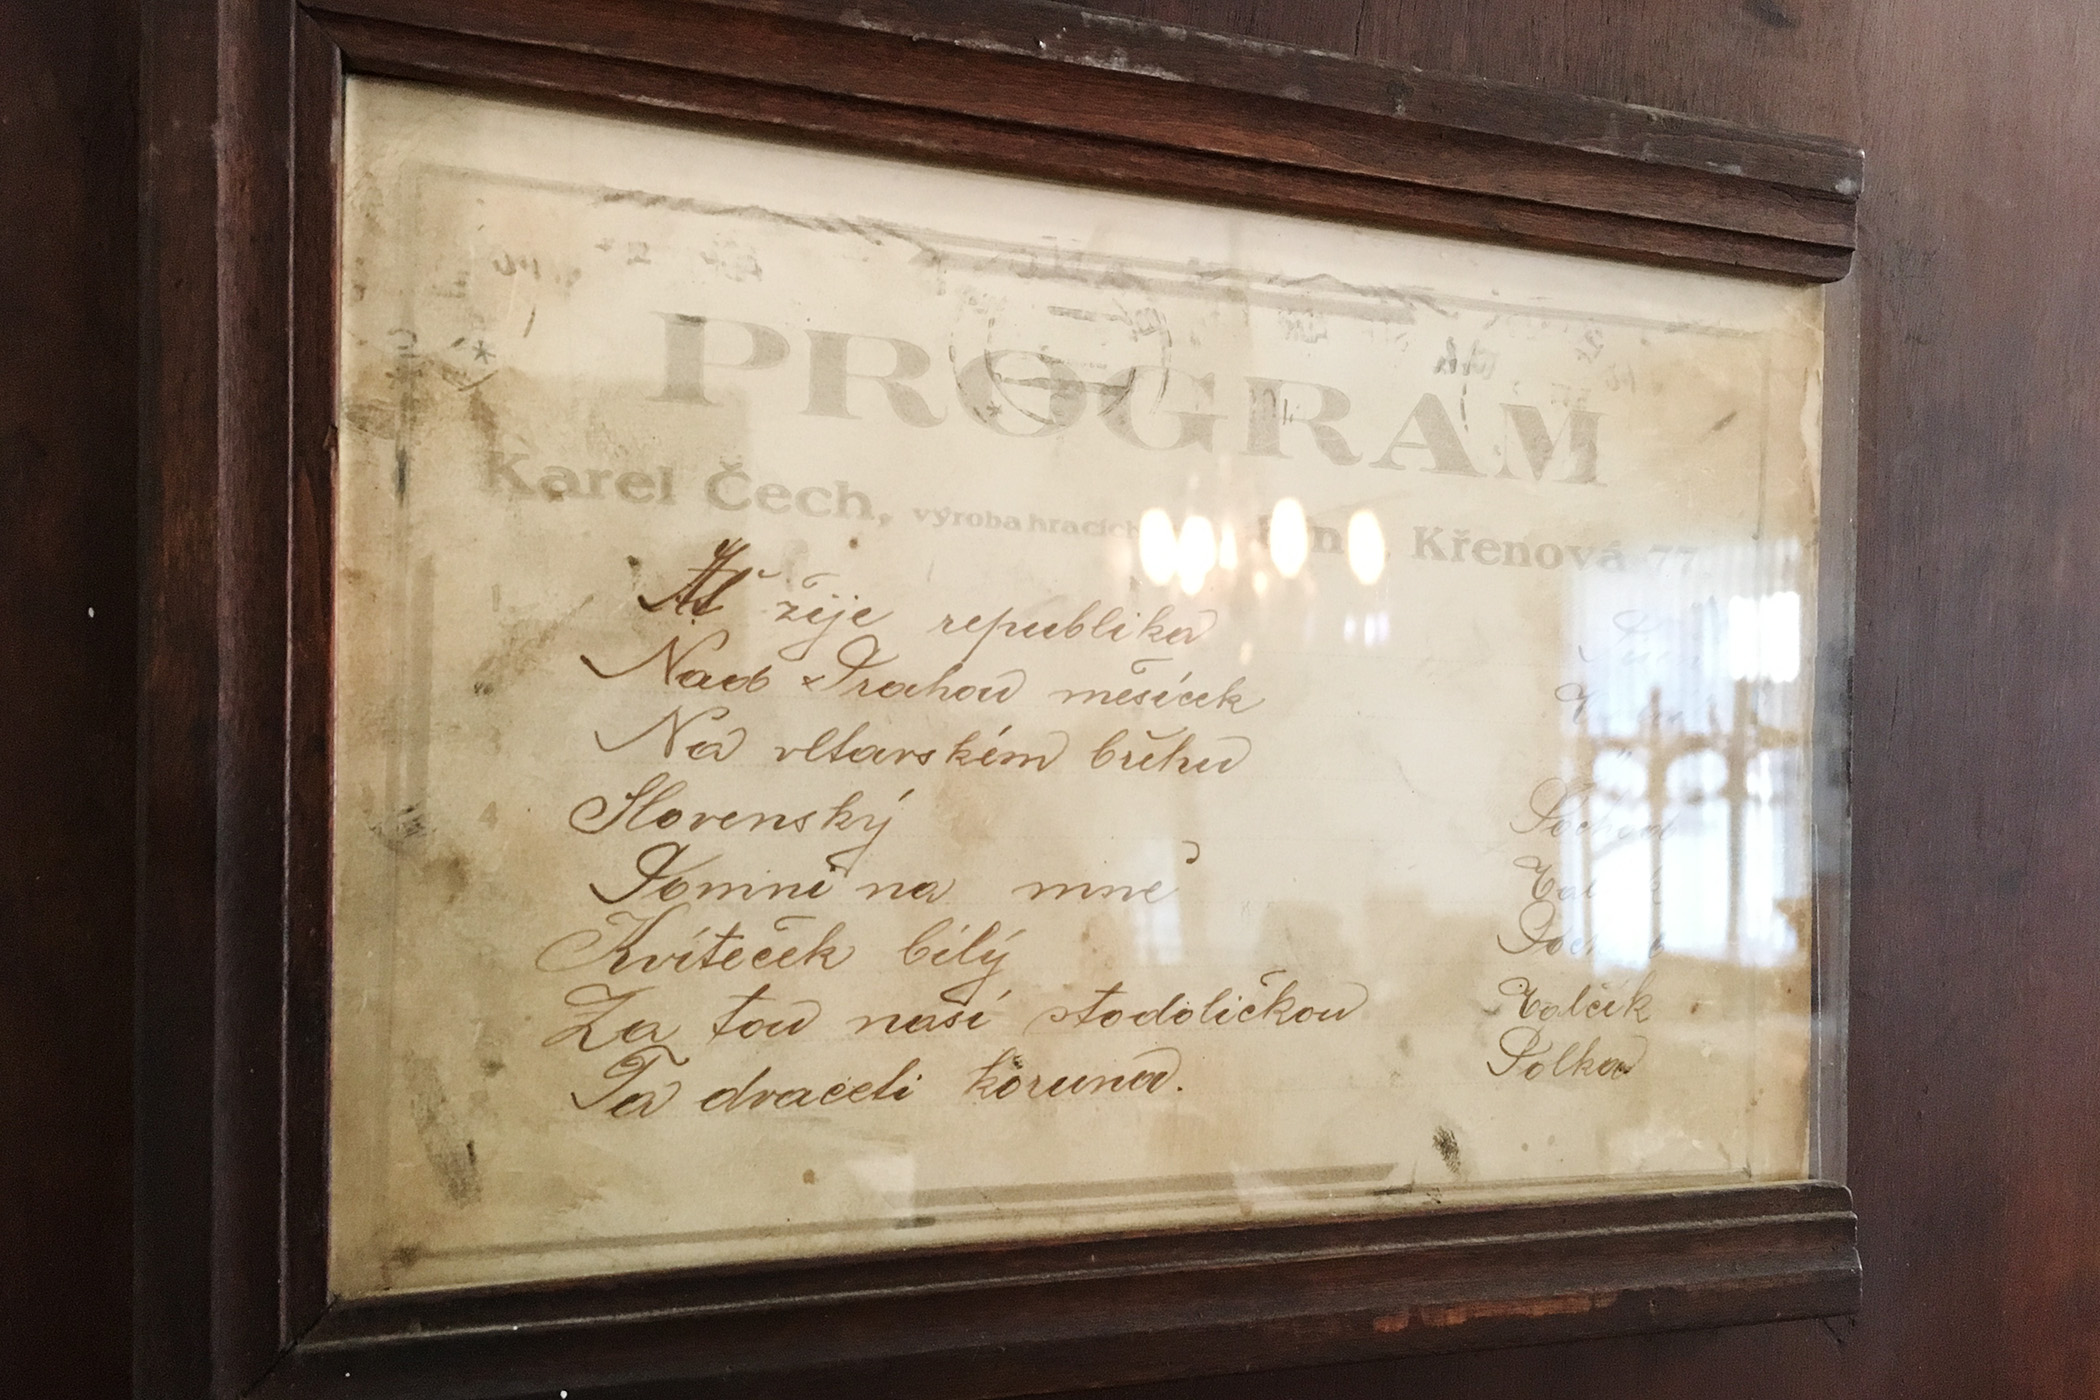 PROGRAM
Karel Čech, výroba hracích Křenová 77
Ať žije republika
Nad Prahou měsíček
Na vltavském břehu
4 Slovenský Pochod
Pomni na mně
Kvíteček bílý
7 Za tou naší stodoličkou Valčík
Ta dvaceti koruna. Polka